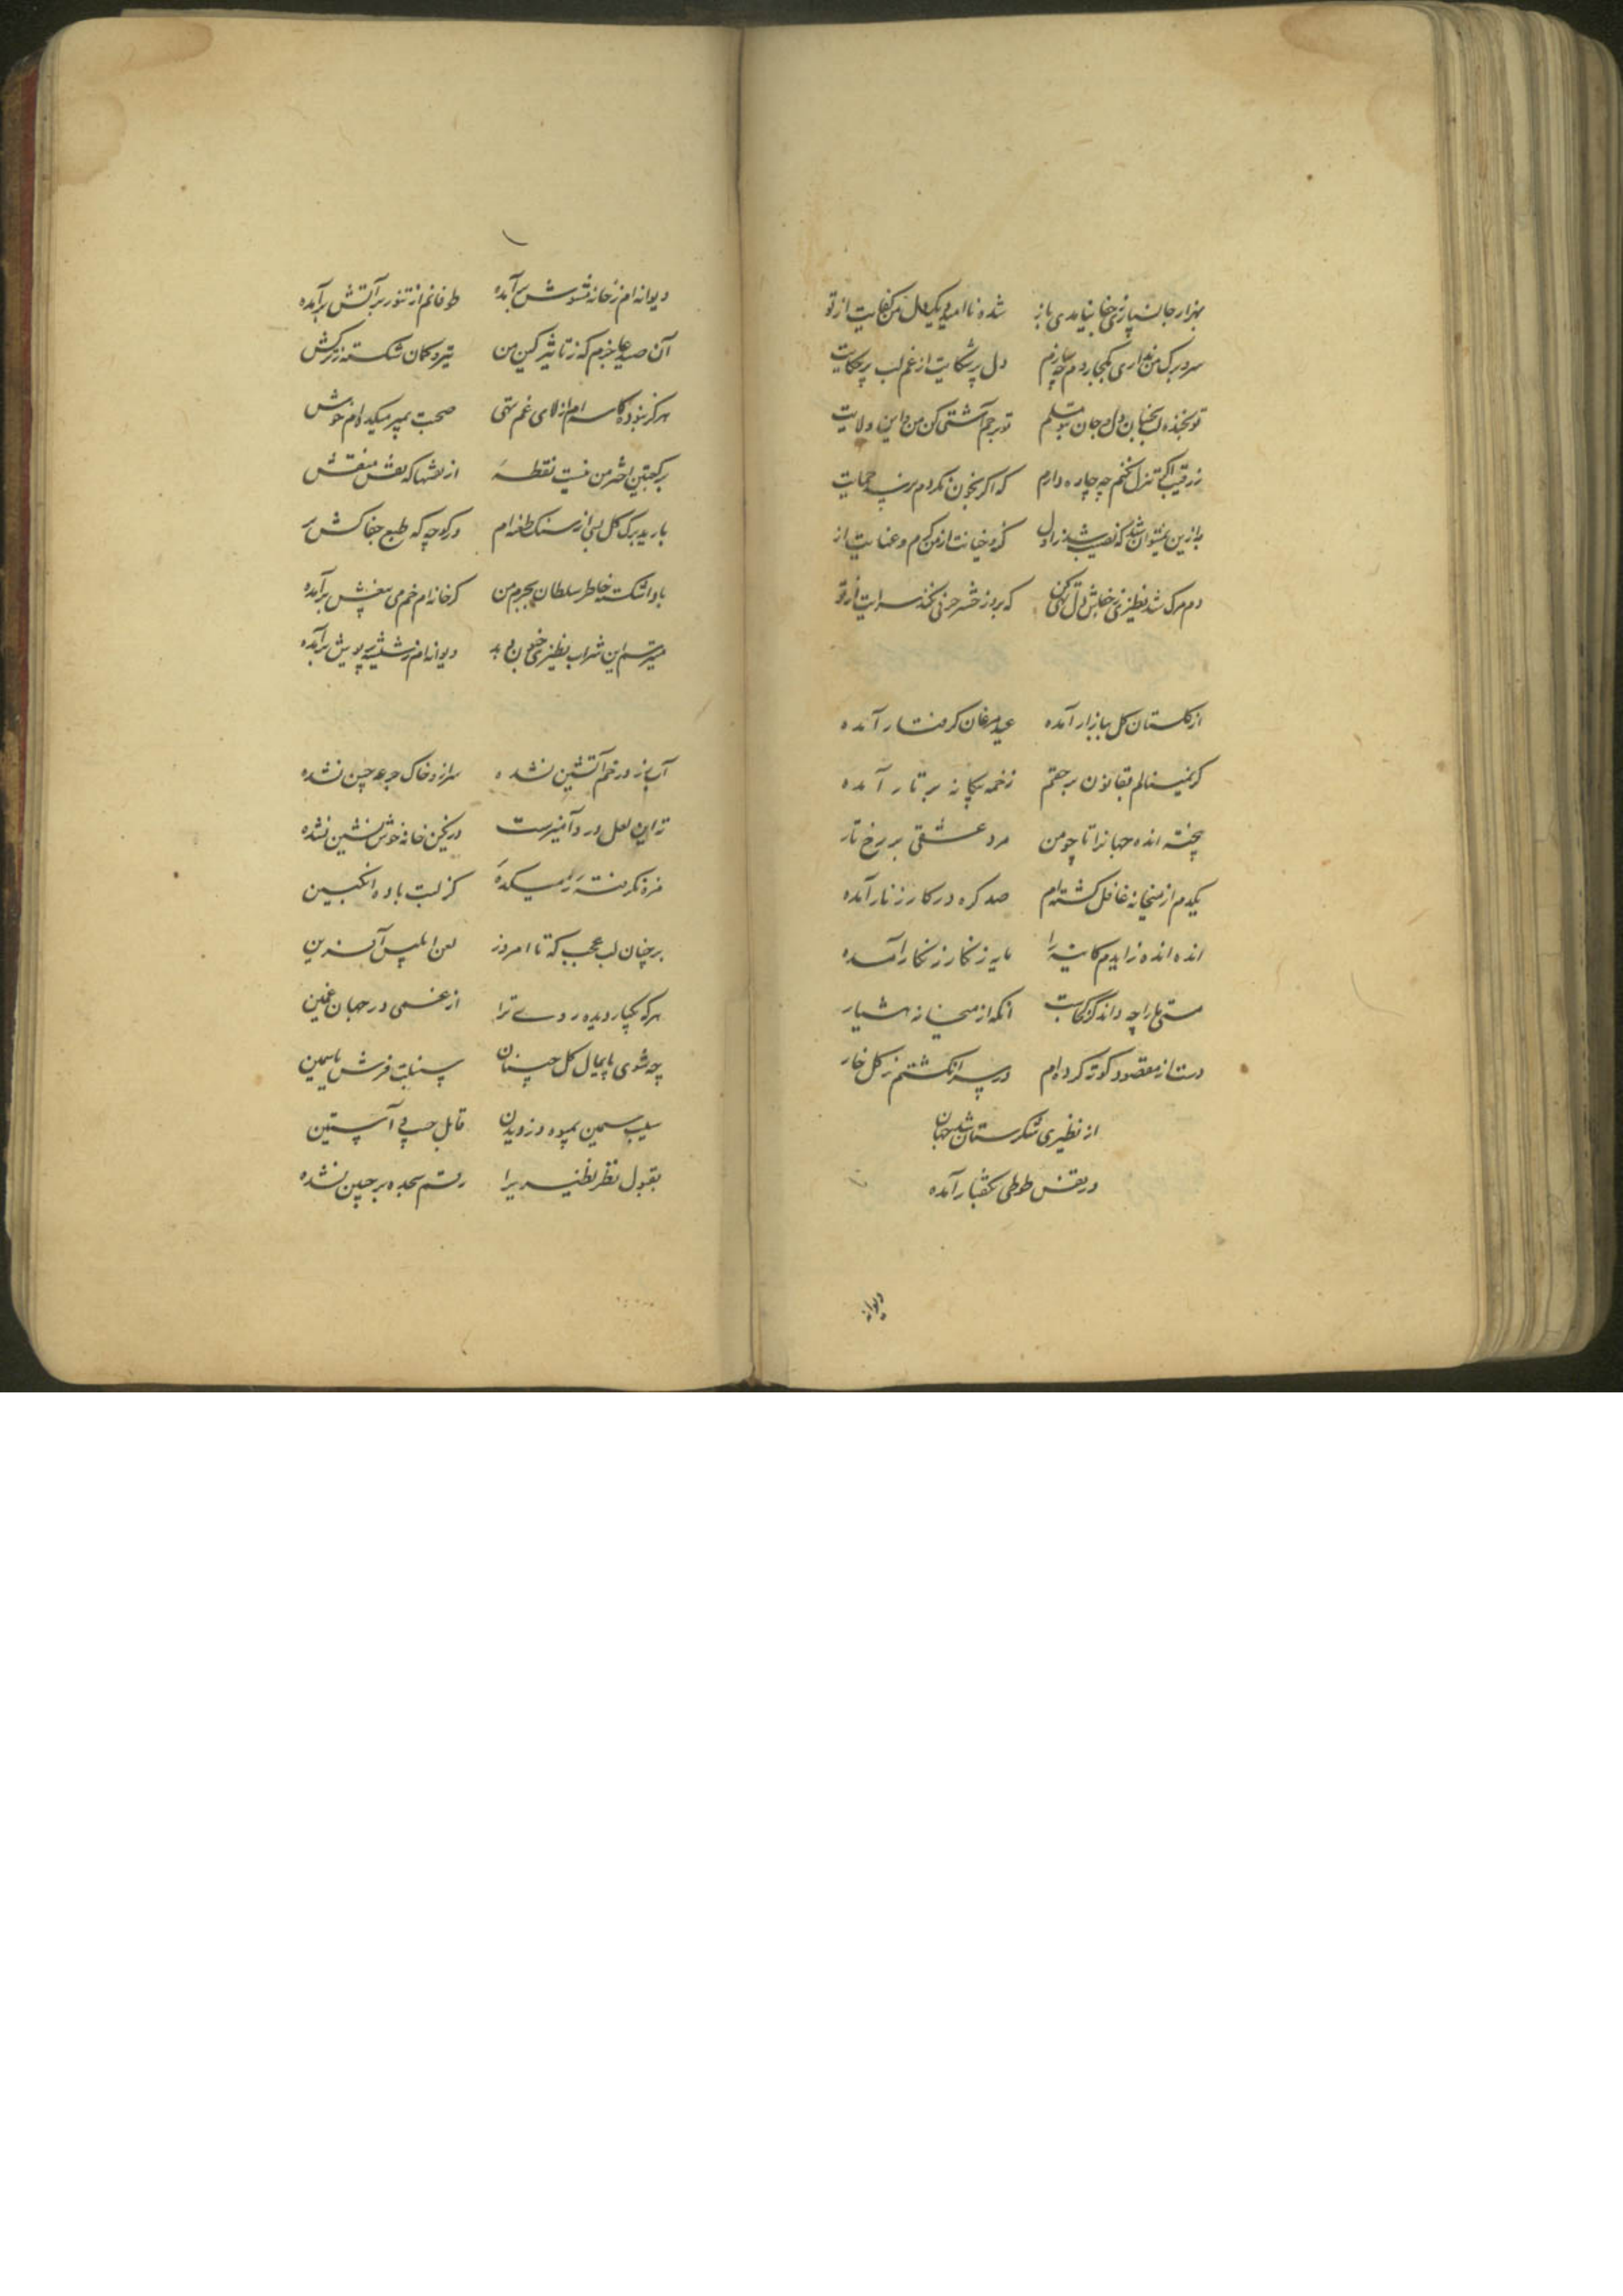 بهزار جان سپاری ز جفا نیامدی باز شده ناامید یک دل ز من کفایت از تو
سر و برگ من نداری بکجا روم چه سازم دل پر شکایت از غم لب پر حکایت
تو بخنده لب بجنبان دل و جان بتو مسلم تو برحم آشتی کن من و این ولایت
ز رقیب اگر تنزل نکنم چه چاره دارم که اگر بخون نکردم نرسد حمایت
به ازین نمیتوان شد که نصیب شد ز اول گنه و خیانت از من کرم و عنایت از
دم مرگ شد نظیری ز خراش دل تهی کن که بروز حشر حرفی نکند سرایت از تو
از گلستان گل ببازار آمده عید مرغان گرفتار آمده
گر نمینالم بقانون رحمتم زخمه بیگانه بر تار آمده
پخته انده جهانرا تا چو من مرد عشقی بر رخ تار
یکدم از میخانه غافل گشته ام صد گره در کار زنار آمده
انده انده زایدم کاینه را مایه زنگار زنگار آمده
مستی ما را چه داند کز کجاست آنکه از میخانه هشیار
دست از مقصود کوته کرده ام در سر انگشتم ز گل خار
از نظیری شکرستان شد جهان
در قفس طوطی بگفتار آمده
دیوانه
دیوانه ام ز خانه مشوش برآمده طوفانم از تنور پر آتش برآمده
آن صید عاجزم که ز تاثیر کین من تیر و کمان شکسته ز ترکش
هرگز نبوده کاسه ام از لای غم تهی صحبت بمیر میکده ام خوش
بر کعبتین اختر من نیست نقطه از نقشها که نقش منقش
بارید برگ گل بسی از سنگ طعنه ام در کوچه که طبع جفاکش بر
بادا شکسته خاطر سلطان بجرم من گر خانه ام خم می بیغش برآمده
میترسم این شراب نظیری جنون دهد دیوانه ام ز شیشه پریوش برآمده
آب رز در خم آتشین نشده سر از و خاک جرعه چین نشده
ته این لعل درد آمیزست در نگین خانه خوش نشین نشده
مزه نگرفته ز میکده کز لبت باده انگبین
بر چنان لب عجب که تا امروز لعن ابلیس آفرین
هر که یکبار دیده روی ترا از غمی در جهان غمین
چه شوی پایمال گل چینان سنبلت فرش یاسمین
سیب سیمین بمیوه دزدیدن قابل جیب و آستین
بقبول نظر نظیری را رقم سجده بر جبین نشده